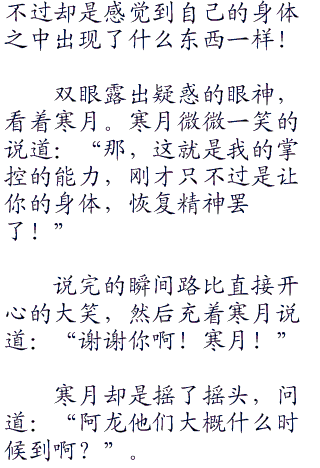 不过却是感觉到自己的身体
之中出现了什么东西一样！
双眼露出疑惑的眼神，
看着寒月。寒月微微一笑的
说道：“那，这就是我的掌
控的能力，刚才只不过是让
你的身体，恢复精神罢
了！”
说完的瞬间路比直接开
心的大笑，然后充着寒月说
道：“谢谢你啊！寒月！”
寒月却是摇了摇头，问
道：“阿龙他们大概什么时
候到啊？”。